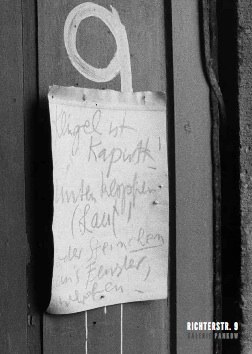 9
Klingel ist
Kaputt!
unten klopfen
(Laut)
oder Steinchen
an's Fenster,
werfen
RICHTERSTR. 9
GALERIE PANKOW